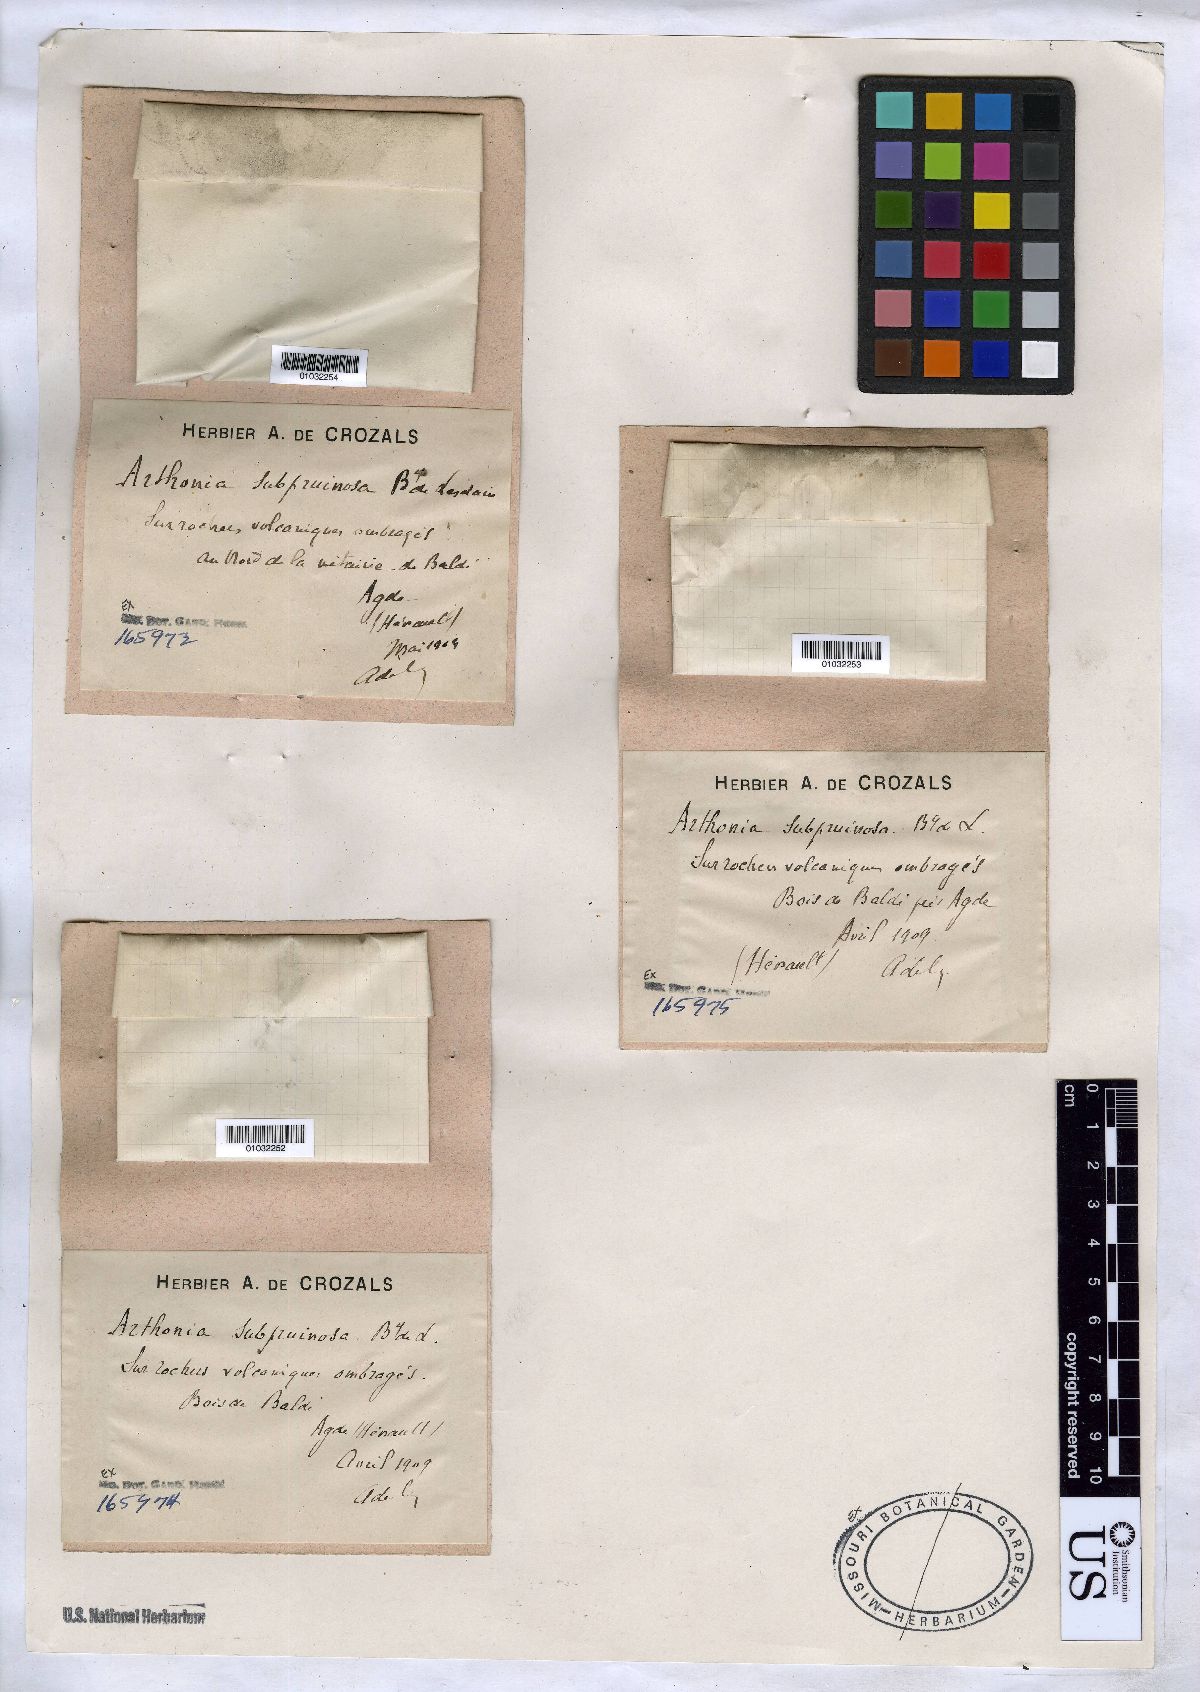 01032254
HERBIER A. DE CROZALS
Arthonia subpruinosa By de Lesdain
Sur rochers volcaniques ombragés
au Nord de la métairie de Baldi
Agde
(Hérault)
Mai 1909
AdeCz
Ex
Mo. Bot. Gard. Herb.
165973
01032253
HERBIER A. DE CROZALS
Arthonia subpruinosa By de L.
Sur rochers volcaniques ombragés
Bois de Baldi près Agde
Avril 1909
(Hérault) AdeCz
Ex
Mo. Bot. Gard. Herb.
165975
01032252
HERBIER A. DE CROZALS
Arthonia subpruinosa By de L.
Sur rochers volcaniques ombragés.
Bois de Baldi
Agde (Hérault)
Avril 1909
AdeCz
Ex
Mo. Bot. Gard. Herb.
165974
U.S. National Herbarium
Ex
MISSOURI BOTANICAL GARDEN
HERBARIUM
cm
0
1
2
3
4
5
6
7
8
9
10
copyright reserved
Smithsonian
Institution
US